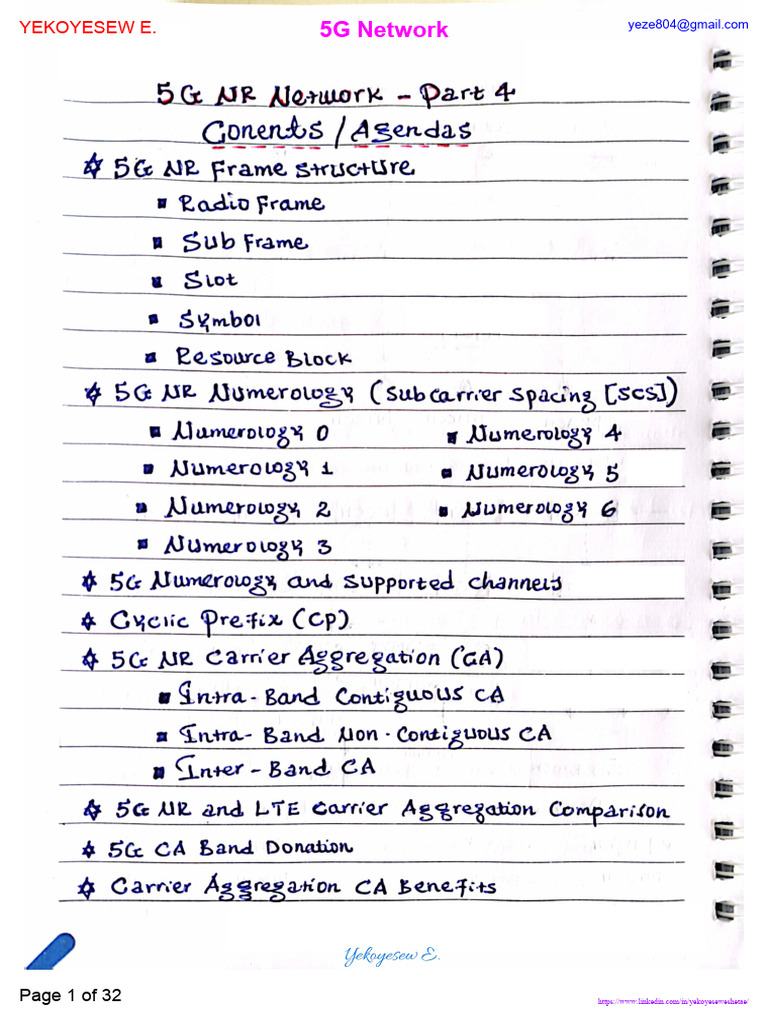 YEKOYESEW E.
5G Network
yeze804@gmail.com
5G NR Network - Part 4
Conents / Agendas
5G NR Frame Structure
Radio Frame
Sub Frame
Slot
Symbol
Resource Block
5G NR Numerology (Subcarrier Spacing [SCS])
Numerology 0
Numerology 4
Numerology 1
Numerology 5
Numerology 2
Numerology 6
Numerology 3
5G Numerology and Supported Channels
Cyclic Prefix (CP)
5G NR Carrier Aggregation (CA)
Intra-Band Contiguous CA
Intra-Band Non-Contiguous CA
Inter-Band CA
5G NR and LTE Carrier Aggregation Comparison
5G CA Band Donation
Carrier Aggregation CA Benefits
Yekoyesew E.
Page 1 of 32
https://www.linkedin.com/in/yekoyeseweshetae/